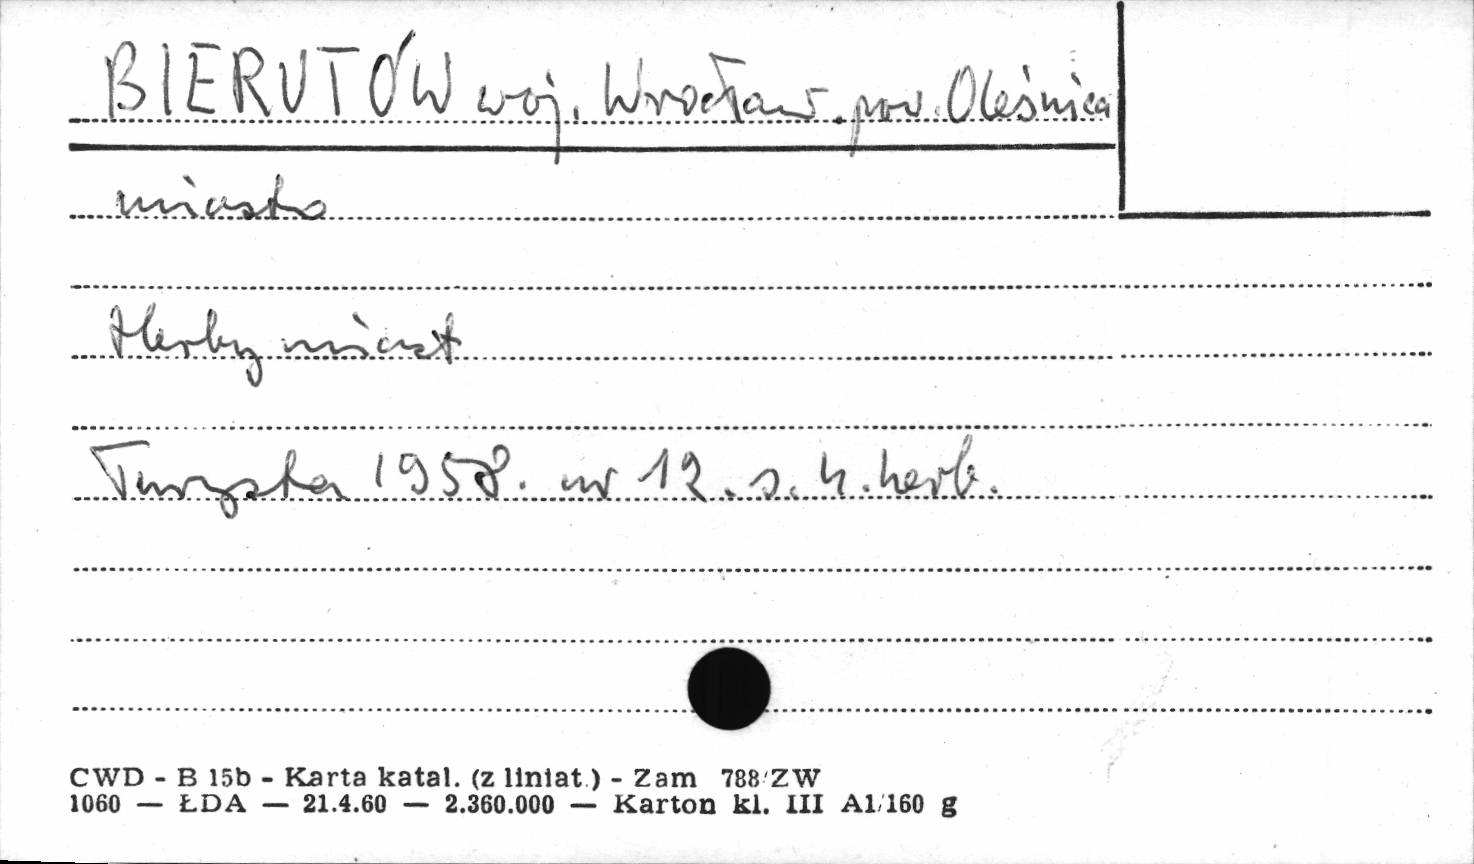 BIERUTÓW woj. Wrocław. pow. Oleśnica
miasto
Herby miast
Turysta 1958. nr 12. s. 4. herb.
CWD - B 15b - Karta katal. (z liniat.) - Zam 788/ZW
1060 — ŁDA — 21.4.60 — 2.360.000 — Karton kl. III A1/160 g